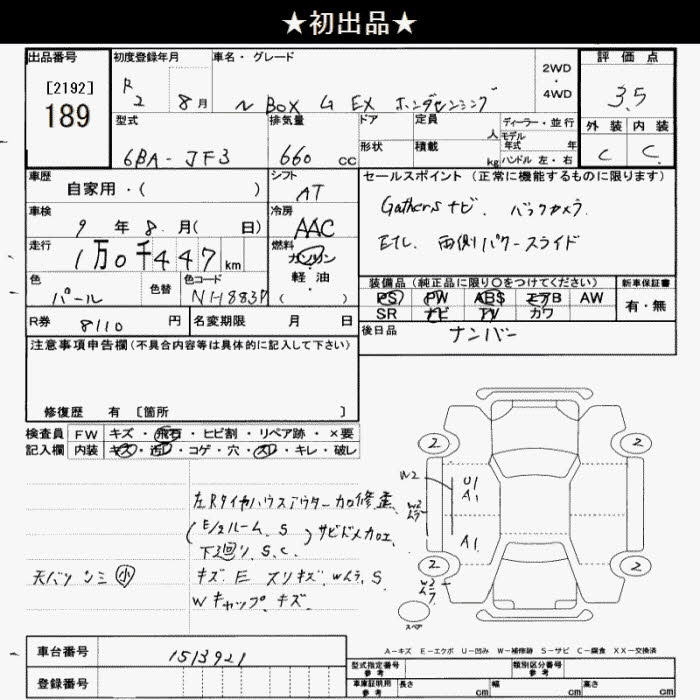 ★初出品★
出品番号
[2192]
189
初度登録年月
R2 8月
車名・グレード
N BOX G EX ホンダセンシング
2WD
・
4WD
評価点
3.5
外装 内装
C C
型式
6BA-JF3
排気量
660 cc
ドア
形状
定員 人
積載 kg
ディーラー・並行
モデル年式 年
ハンドル 左・右
車歴
自家用・( )
シフト
AT
車検
9年8月( 日)
冷房
AAC
走行
1万0千447km
燃料
ガソリン
軽・油
( )
色
パール
色替
色コード
NH883P
R券 8110円
名変期限 月 日
セールスポイント(正常に機能するものに限ります)
Gathersナビ. バックカメラ
ETC. 両側パワースライド
装備品(純正品に限り○をつけてください)
PS PW ABS エアB AW
SR ナビ TV カワ
新車保証書
有・無
後日品
ナンバー
注意事項申告欄(不具合内容等は具体的に記入して下さい)
修復歴 有 [箇所 ]
検査員記入欄
FW キズ・飛石・ヒビ割・リペア跡・×要
内装 キズ・汚レ・コゲ・穴・スレ・キレ・破レ
左Rタイヤハウスアウター加修歪
(E/2ルーム. S) サビドメカロエ
下廻り. S. C.
天バリ シミ 小
キズ E スリキズ. Wムラ. S
Wキャップ. キズ
2 2
W2
U1
A1
W2
ムラ
A1
2 2
W2
ムラ
スペア
A-キズ E-エクボ U-凹み W-補修跡 S-サビ C-腐食 XX-交換済
車台番号 1513921
登録番号
型式指定番号
参考
類別区分番号
参考
車庫証明用
参考
長さ cm 幅 cm 高さ cm